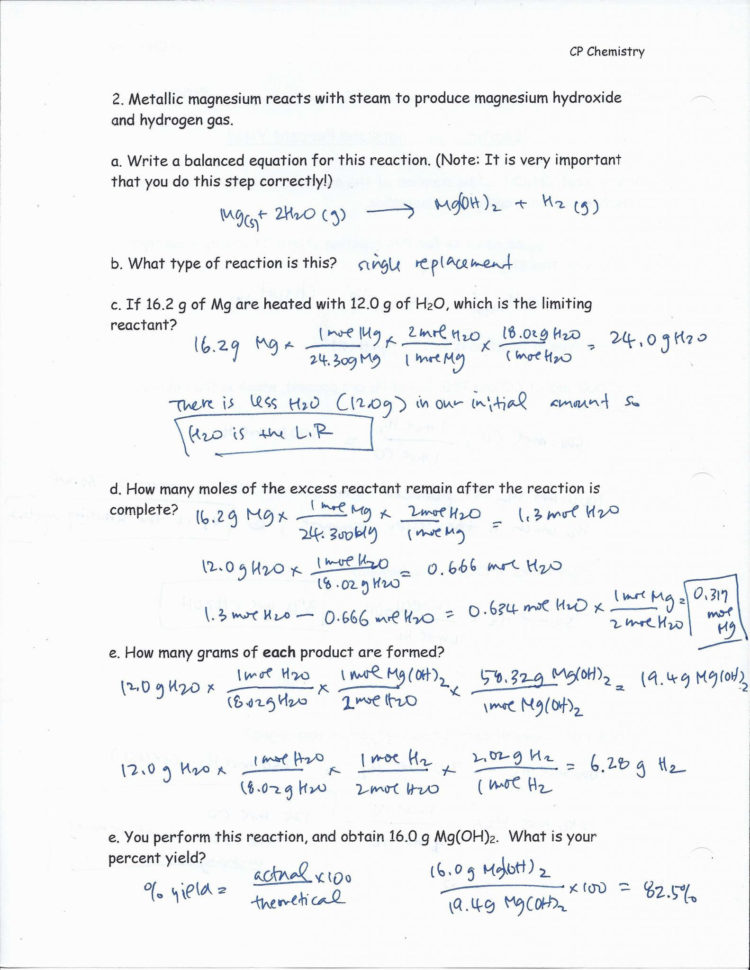 CP Chemistry
2. Metallic magnesium reacts with steam to produce magnesium hydroxide
and hydrogen gas.
a. Write a balanced equation for this reaction. (Note: It is very important
that you do this step correctly!)
Mg(s) + 2H2O (g) → Mg(OH)2 + H2 (g)
b. What type of reaction is this? single replacement
c. If 16.2 g of Mg are heated with 12.0 g of H2O, which is the limiting
reactant?
16.2g Mg × 1 mole Mg / 24.30g Mg × 2 mole H2O / 1 mole Mg × 18.02g H2O / 1 mole H2O = 24.0g H2O
There is less H2O (12.0g) in our initial amount so
H2O is the L.R
d. How many moles of the excess reactant remain after the reaction is
complete? 16.2g Mg × 1 mole Mg / 24.300 Mg × 2 mole H2O / 1 mole Mg = 1.3 mol H2O
12.0g H2O × 1 mole H2O / 18.02g H2O = 0.666 mol H2O
1.3 mol H2O − 0.666 mol H2O = 0.634 mol H2O × 1 mol Mg / 2 mole H2O = 0.317 mol Mg
e. How many grams of each product are formed?
12.0g H2O × 1 mol H2O / 18.02g H2O × 1 mol Mg(OH)2 / 2 mole H2O × 58.32g Mg(OH)2 / 1 mol Mg(OH)2 = 19.4g Mg(OH)2
12.0g H2O × 1 mol H2O / 18.02g H2O × 1 mol H2 / 2 mol H2O × 2.02g H2 / 1 mol H2 = 6.28g H2
e. You perform this reaction, and obtain 16.0 g Mg(OH)2. What is your
percent yield?
% yield = actual / theoretical × 100 16.0g Mg(OH)2 / 19.4g Mg(OH)2 × 100 = 82.5%